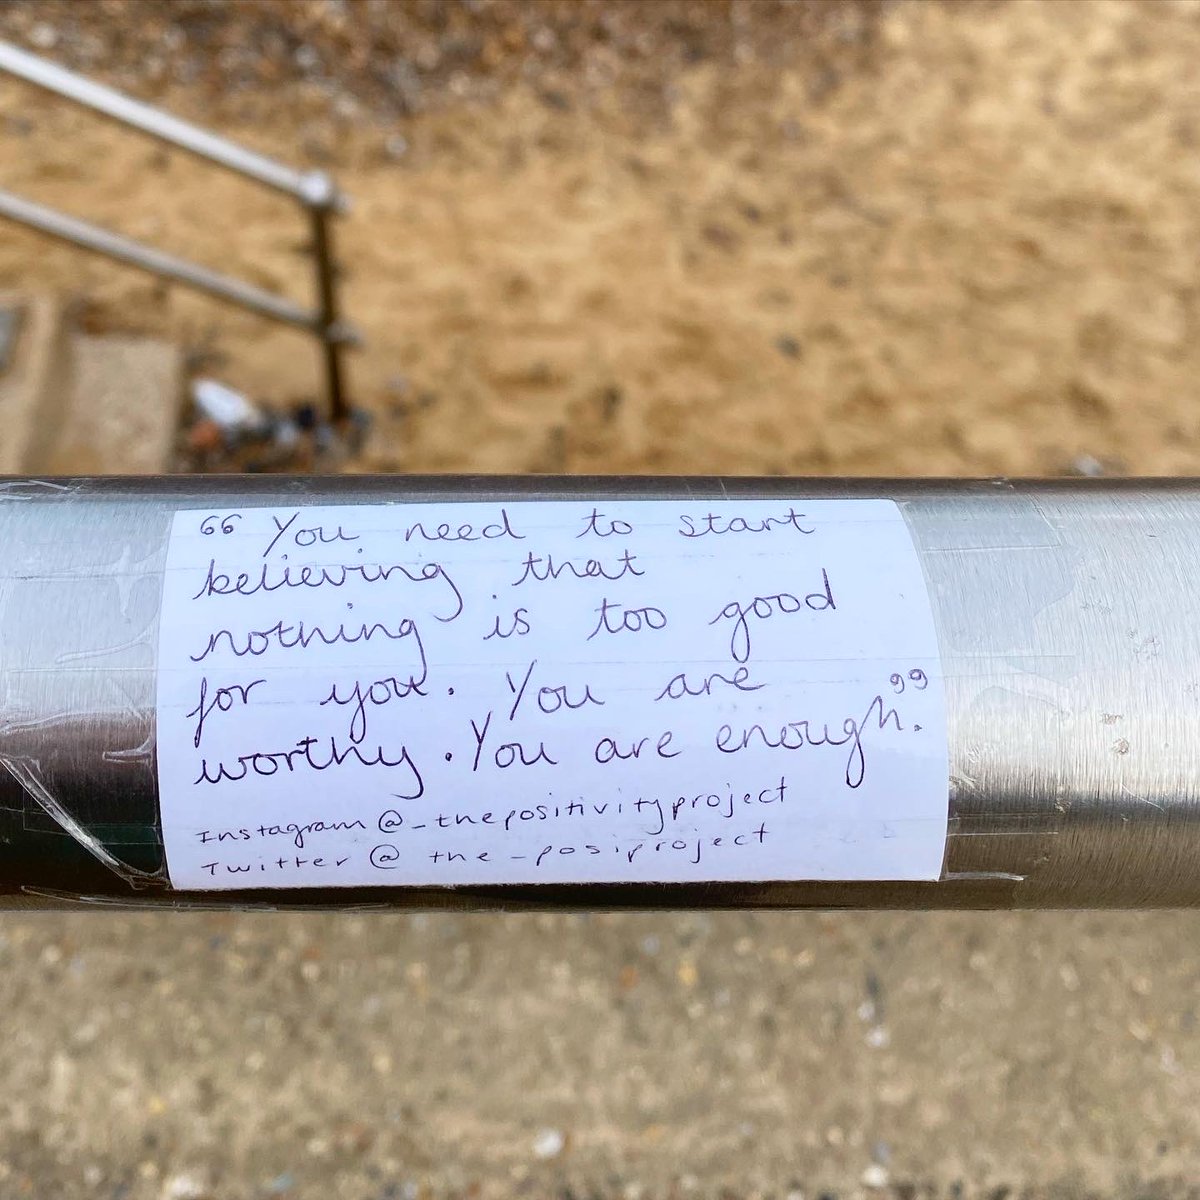 “You need to start
believing that
nothing is too good
for you. You are
worthy. You are enough.”
Instagram @_thepositivityproject
Twitter @ the_posiproject